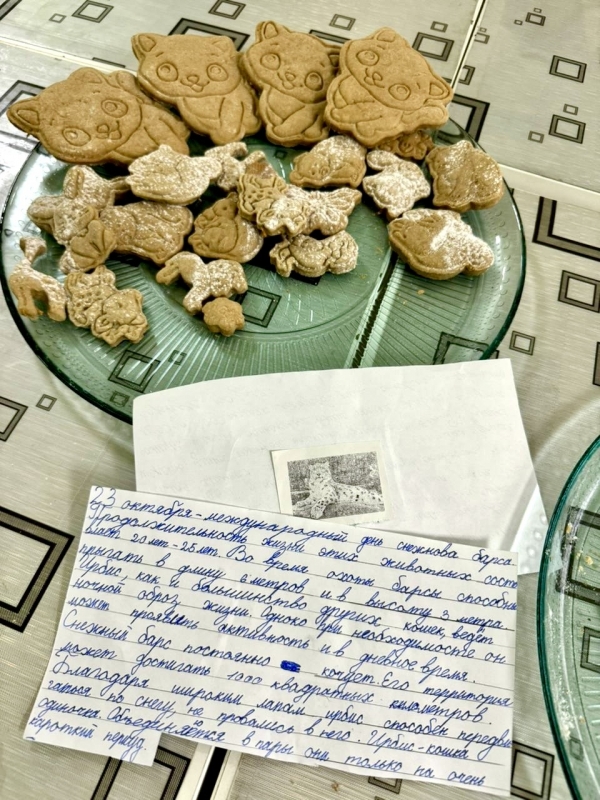 23 октября - международный день снежнова барса.
Продолжительность жизни этих животных соста
вляет 20 лет-25 лет. Во время охоты барсы способны
прыгать в длину 6 метров и в высоту 3 метра
Ирбис как и большинство других кошек, ведёт
ночной образ жизни. Однако при необходимосте он
может проявлять активность и в дневное время.
Снежный барс постоянно кочует Его территория
может достигать 1000 квадратных километров.
Благодаря широким лапам ирбис способен передви
гаться по снегу, не провалясь в него. Ирбис-кошка
одиночка. Объединяется в пары они только на очень
короткий период.